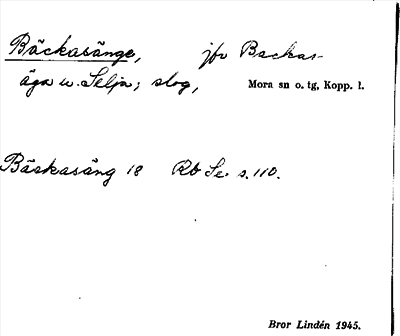 Bäckasänge, jfr Backas-
äga u. Selja; slog, Mora sn o. tg, Kopp. l.
Bäskasäng 18 Rb Se. s. 110.
Bror Lindén 1945.